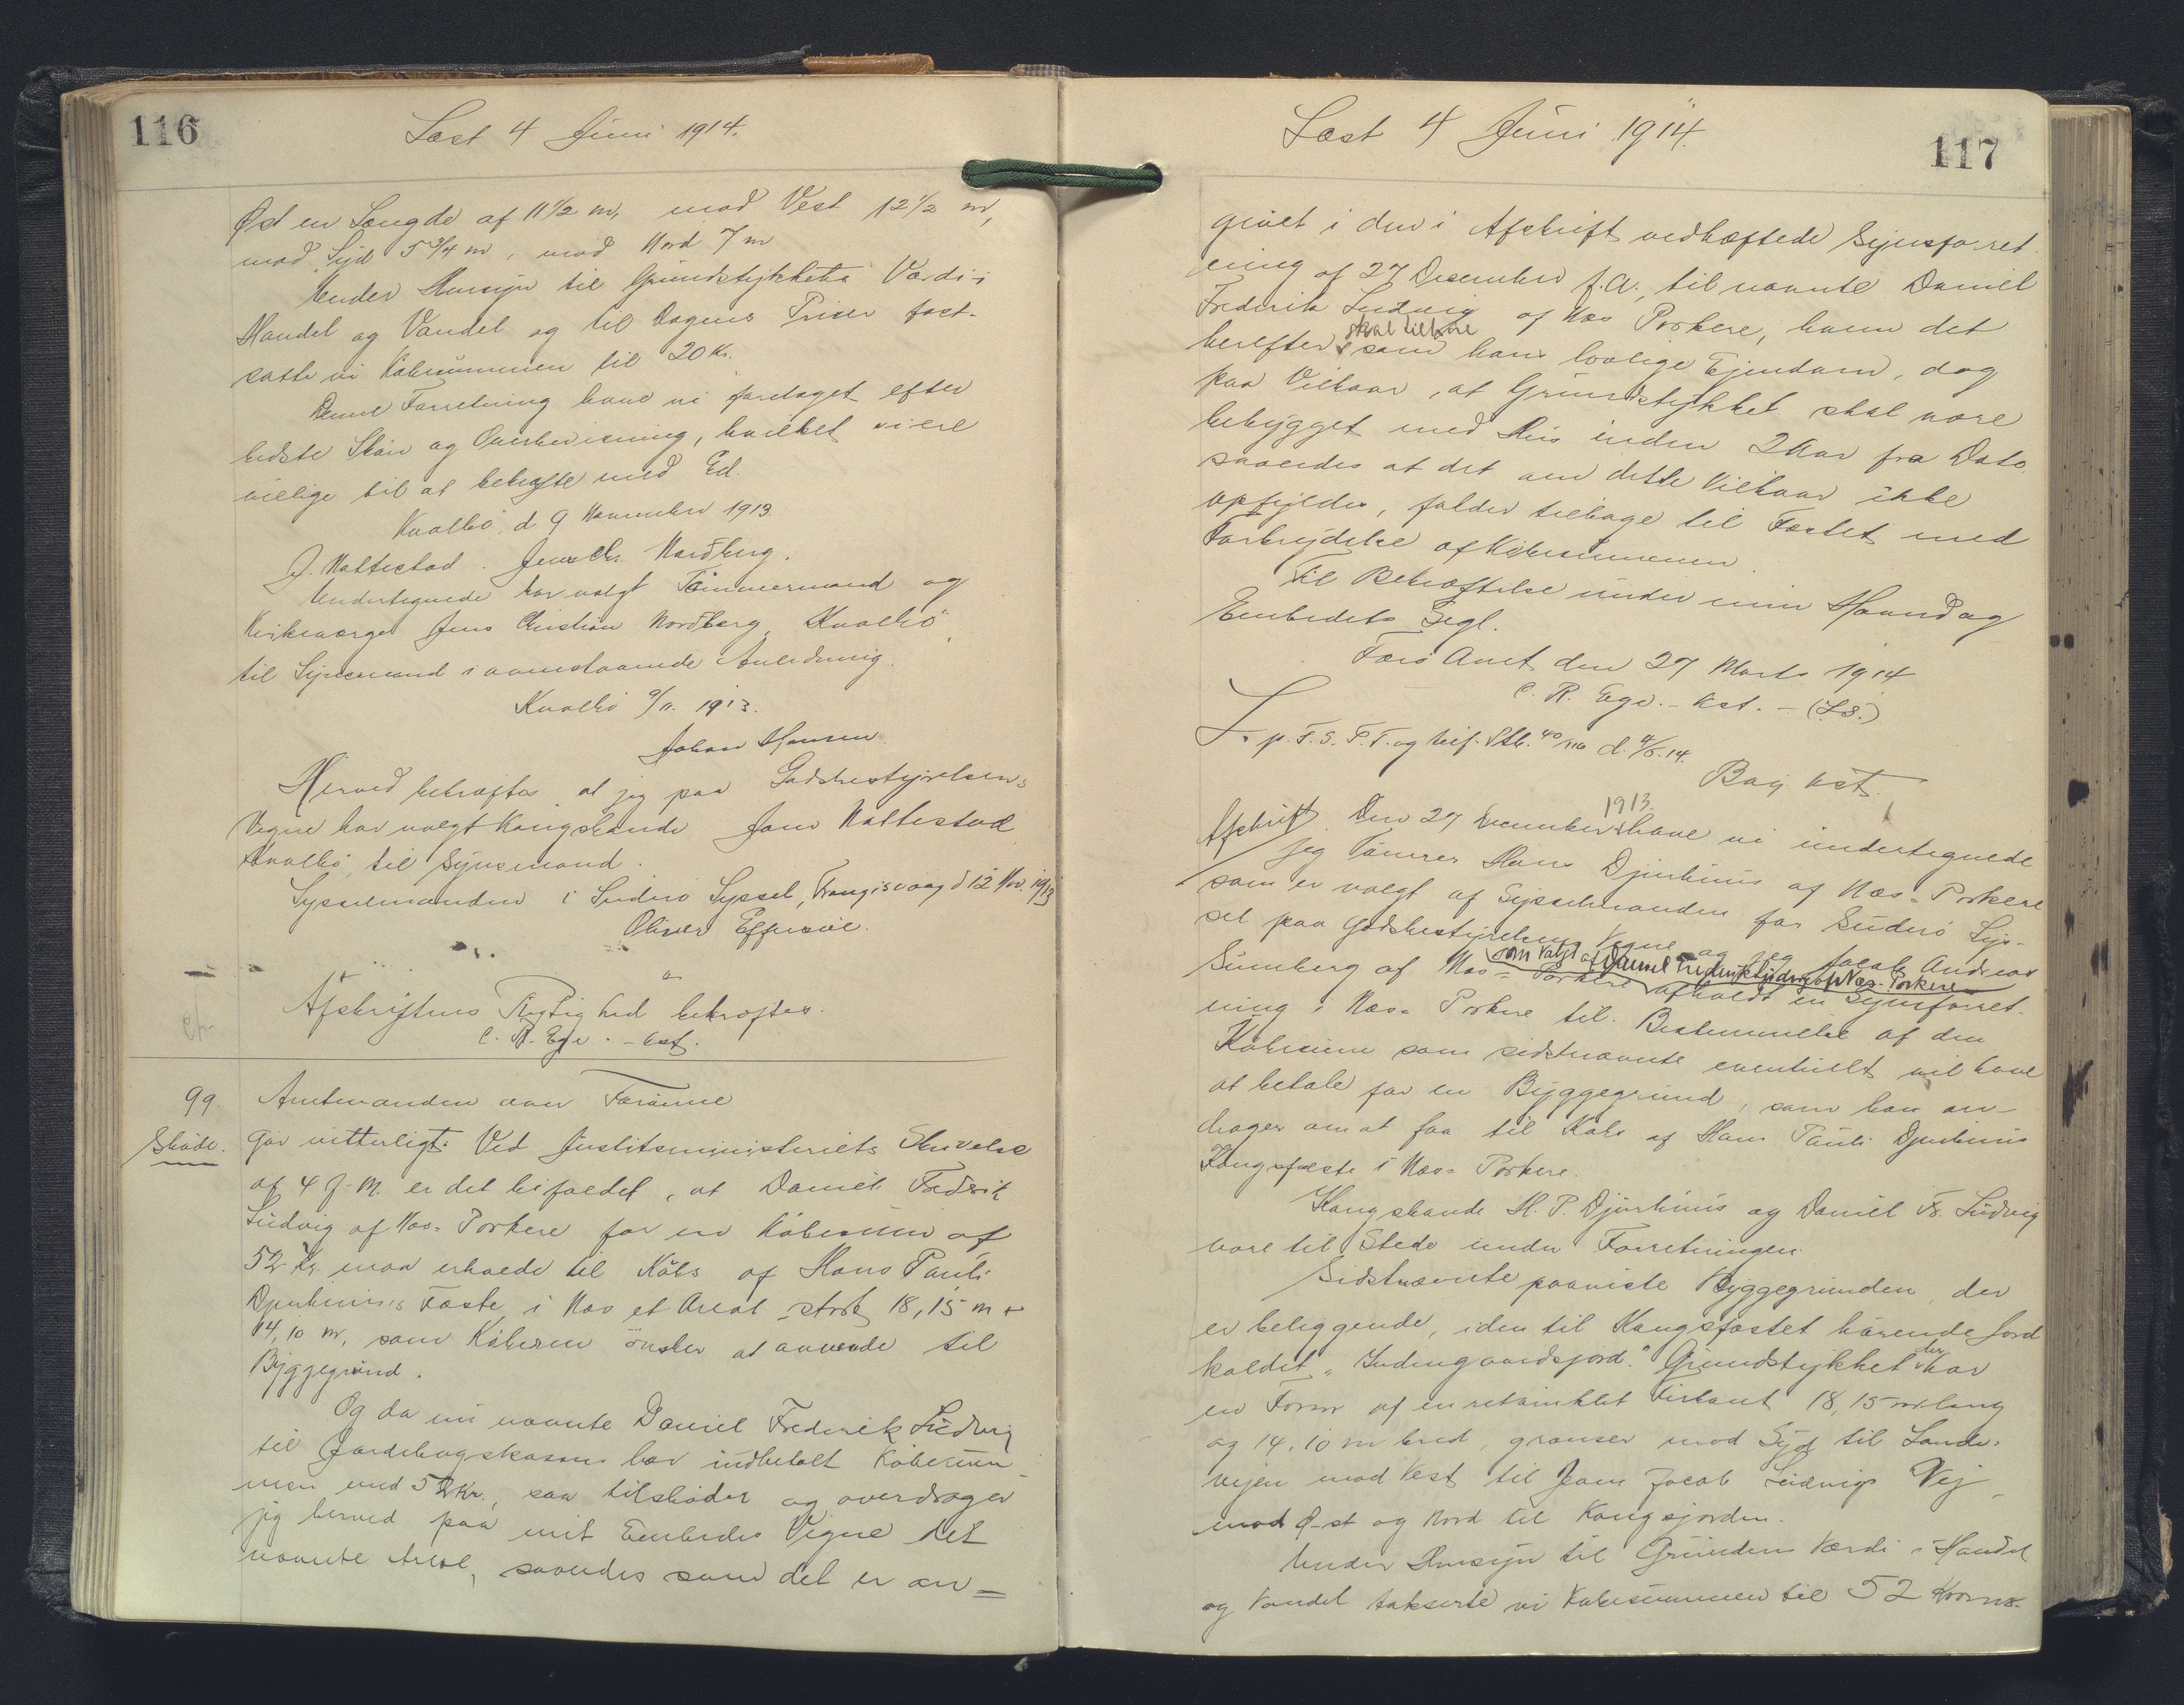 116
Læst 4 Juni 1914.
Øst en Længde af 11 1/2 m, mod Vest 12 1/2 m,
mod Syd 5 3/4 m, mod Nord 7 m
Under Hensyn til Grundstykkets Værdi i
Handel og Vandel og til Dagens Priser fast-
satte vi Købesummen til 20 Kr.
Denne Forretning have vi foretaget efter
bedste Skøn og Overbevisning, hvilket vi ere
villige til at bekræfte med Ed.
Kvalbø, d 9 November 1913
J. Nattestad. Jens Chr. Nordberg.
Undertegnede har valgt Tømmermand og
Kirkeværge Jens Christian Nordberg, Kvalbø,
til Synsmand i ovenstaaende Anledning.
Kvalbø 9/11. 1913.
Johan Hansen
Herved bekræftes, at jeg paa Godsbestyrelsens
Vegne har valgt Kongsbonde Joen Nattestad
Kvalbø, til Synsmand.
Sysselmanden i Suderø Syssel, Trangisvaag d 12 Nov. 1913
Oliver Effersøe.
Afskriftens Rigtighed bekræftes.
C. R. Ege. - kst.
99. Amtmanden over Færøerne
Skøde. Gør vitterligt: Ved Justitsministeriets Skrivelse
af 4 f. M. er det bifaldet, at Daniel Fredrik
Ludvig af Næs=Porkere for en Købesum af
52 Kr. maa erholde til Købs af Hans Pauli
Djurhuus's Fæste i Næs et Areal, stort 18,15 m +
14,10 m, som Køberen ønsker at anvende til
Byggegrund.
Og da nu nævnte Daniel Frederik Ludvig
til Jordebogskassen har indbetalt Købesum-
men med 52 Kr., saa tilskøder og overdrager
jeg herved paa mit Embedes Vegne det
nævnte Areal, saaledes som det er an=
117
Læst 4 Juni 1914.
givet i den i Afskrift vedhæftede Synsforret
ning af 27 December f. A., til nævnte Daniel
Frederik Ludvig af Næs Porkere, hvem det
skal tilhøre
herefter som hans lovlige Ejendom, dog
paa Vilkaar, at Grundstykket skal være
bebygget med Hus inden 2 Aar fra Dato
saaledes at det om dette Vilkaar ikke
opfyldes, falder tilbage til Fæstet med
Forbrydelse af Købesummen
Til Bekræftelse under min Haand og
Embedets Segl.
Færø Amt den 27 Marts 1914
C. R. Ege. - kst. - (L.S.)
L. p. F. S. P. T. og tilf. Skb. 40/116 d. 4/6. 14.
Bay. kst.
1913.
Afskrift. Den 27 December have vi undertegnede
jeg Tømrer Hans Djurhuus af Næs=Porkere
som er valgt af Sysselmanden for Suderø Sys-
sel paa Godsbestyrelsens Vegne og jeg Jacob Andreas
som valgt af Daniel Frederik Ludvig af Næs-Porkere
Sumberg af Næs=Porkere afholdt en Synsforret-
ning i Næs=Porkere til Bestemmelse af den
Købesum som sidstnævnte eventuelt vil have
at betale for en Byggegrund, som han an-
drager om at faa til Købs af Hans Pauli Djurhuus
Kongsfæste i Næs=Porkere.
Kongsbonde H. P. Djurhuus og Daniel Fr. Ludvig
vare til Stede under Forretningen.
Sidstnævnte paaviste Byggegrunden, der
er beliggende, i den til Kongsfæstet hørende Jord
kaldet "Indengaardsjord." Grundstykket der har
en Form af en retvinklet Firkant 18,15 m lang
og 14,10 m bred, grænser mod Syd til Lande-
vejen mod Vest til Joen Jacob Ludvigs Vej,
mod Øst og Nord til Kongsjorden.
Under Hensyn til Grundens Værdi i Handel
og Vandel takserte vi Købesummen til 52 Kroner.